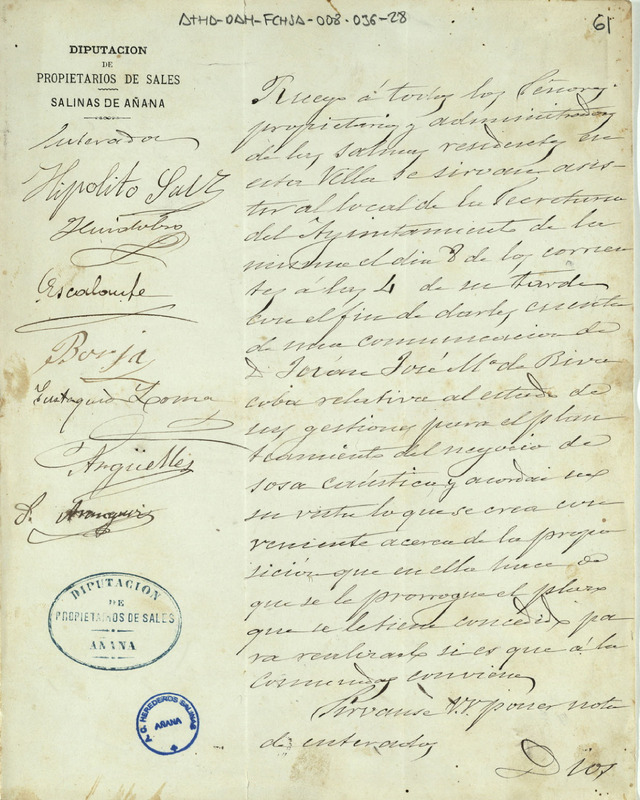 ATHA-DAH-FCHSA-008-036-28
61
DIPUTACION
DE
PROPIETARIOS DE SALES
SALINAS DE AÑANA
Enterados
Hipólito Saez
Huidobro
Escalante
Borja
Eustaquio Zoma
Argüelles
DIPUTACION
DE
PROPIETARIOS DE SALES
AÑANA
A.G. HEREDEROS SALINAS
AÑANA
Ruego á todos los Señores
propietarios y administradores
de las salinas residentes en
esta Villa se sirvan asis-
tir al local de la Secretaria
del Ayuntamiento de la
misma el dia 8 de los corrien
tes á las 4 de su tarde
con el fin de darles cuenta
de una comunicacion de
D. José Mª de Riva
coba relativa al estado de
sus gestiones para el plan
teamiento del negocio de
sosa caústica y acordar en
su vista lo que se crea con
veniente acerca de la propo
sición que en ella hace de
que se le prorrogue el plazo
que se le tiene concedido pa
ra realizarlo si es que á la
comunidad conviene
Sirvanse VV. poner nota
de enterados
Dios